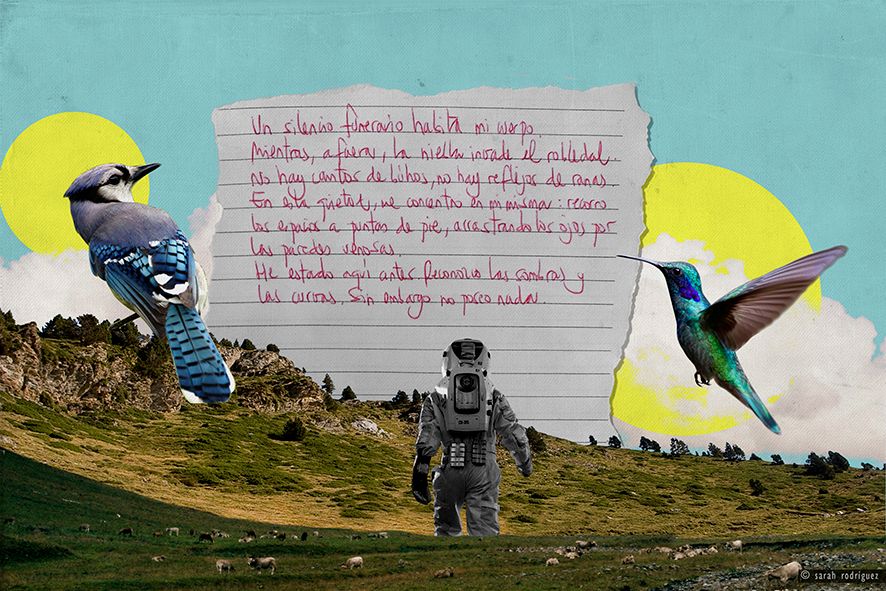 Un silencio funerario habita mi cuerpo.
Mientras, afuera, la niebla invade el robledal.
No hay cantos de búhos, no hay reflejos de ranas.
En esta quietud, me concentro en mi misma: recorro
los espacios a puntas de pie, arrastrando los ojos por
las paredes venosas.
He estado aquí antes. Reconozco las sombras y
las curvas. Sin embargo no poseo nada.
© sarah rodríguez